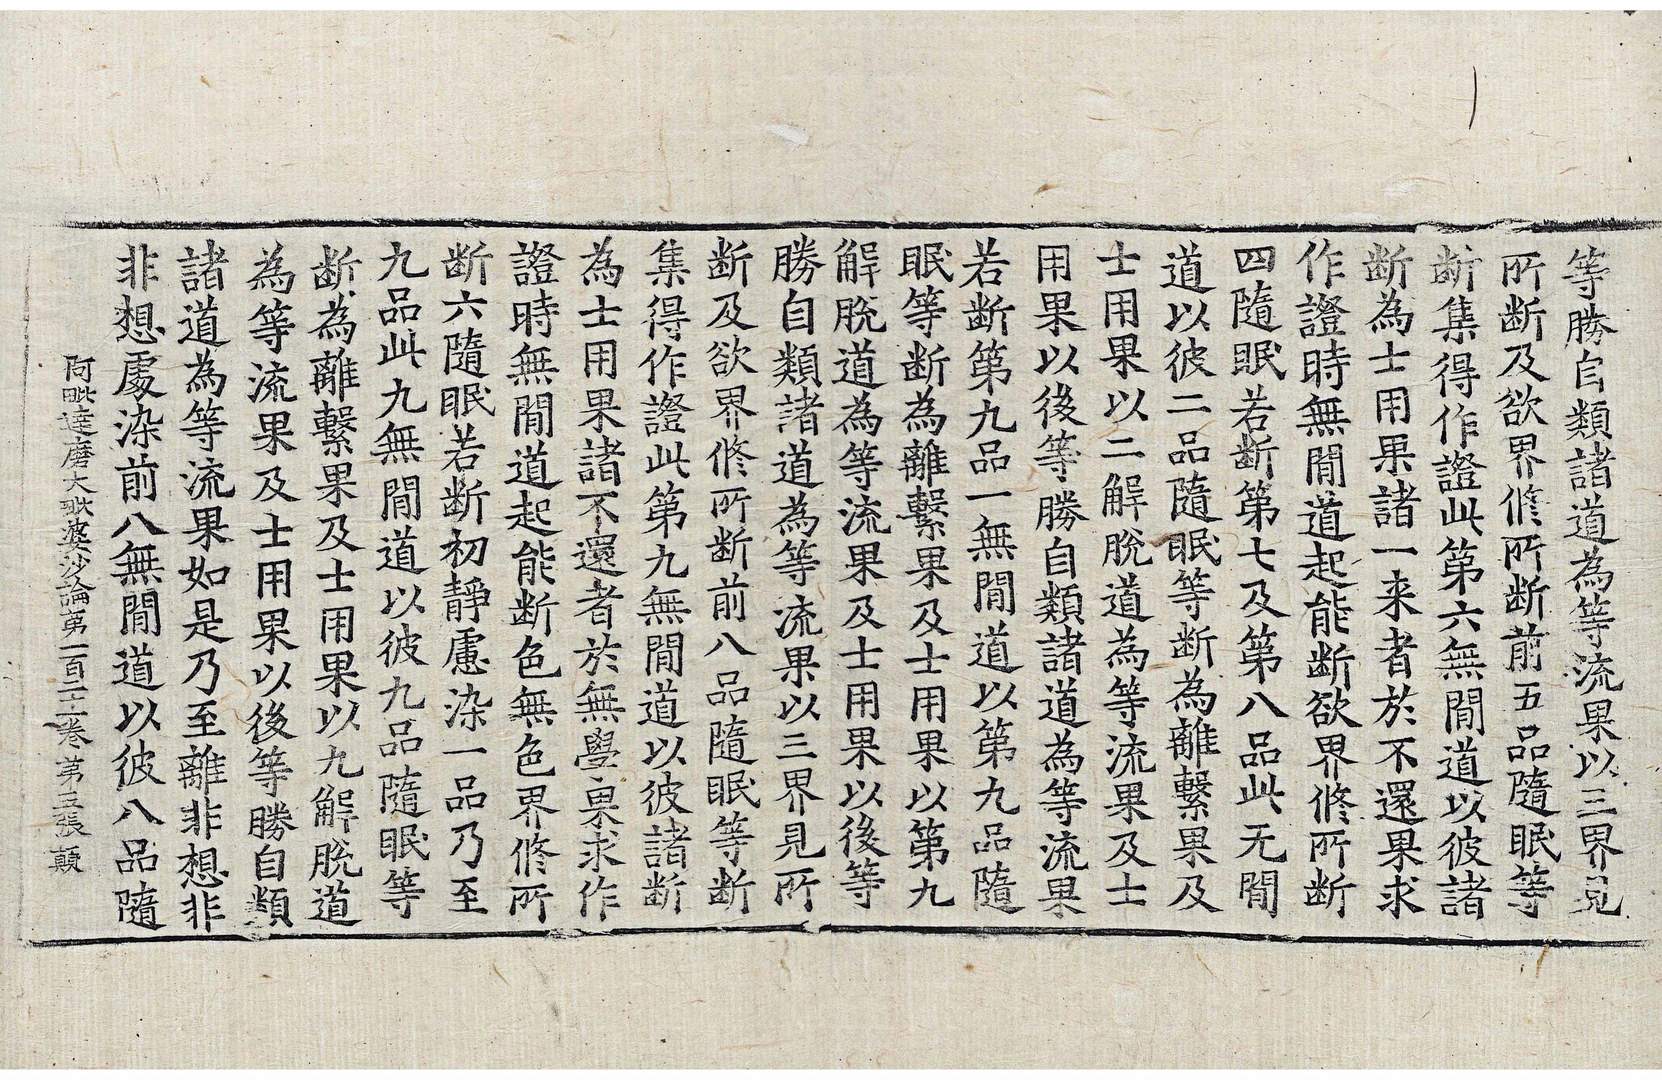 等勝自類諸道為等流果以三界見
所断及欲界修所断前五品隨眠等
断集得作證此第六無間道以彼諸
断為士用果諸一来者於不還果求
作證時無間道起能断欲界修所断
四隨眠若断第七及第八品此无間
道以彼二品隨眠等断為離繫果及
士用果以二解脫道為等流果及士
用果以後等勝自類諸道為等流果
若断第九品一無間道以第九品隨
眠等断為離繫果及士用果以第九
解脫道為等流果及士用果以後等
勝自類諸道為等流果以三界見所
断及欲界修所断前八品隨眠等断
集得作證此第九無間道以彼諸断
為士用果諸不還者於無學果求作
證時無間道起能断色無色界修所
断六隨眠若断初靜慮染一品乃至
九品此九無間道以彼九品隨眠等
断為離繫果及士用果以九解脫道
為等流果及士用果以後等勝自類
諸道為等流果如是乃至離非想非
非想處染前八無間道以彼八品隨
阿毗達磨大毗婆沙論第一百二十一卷 第三張 顛